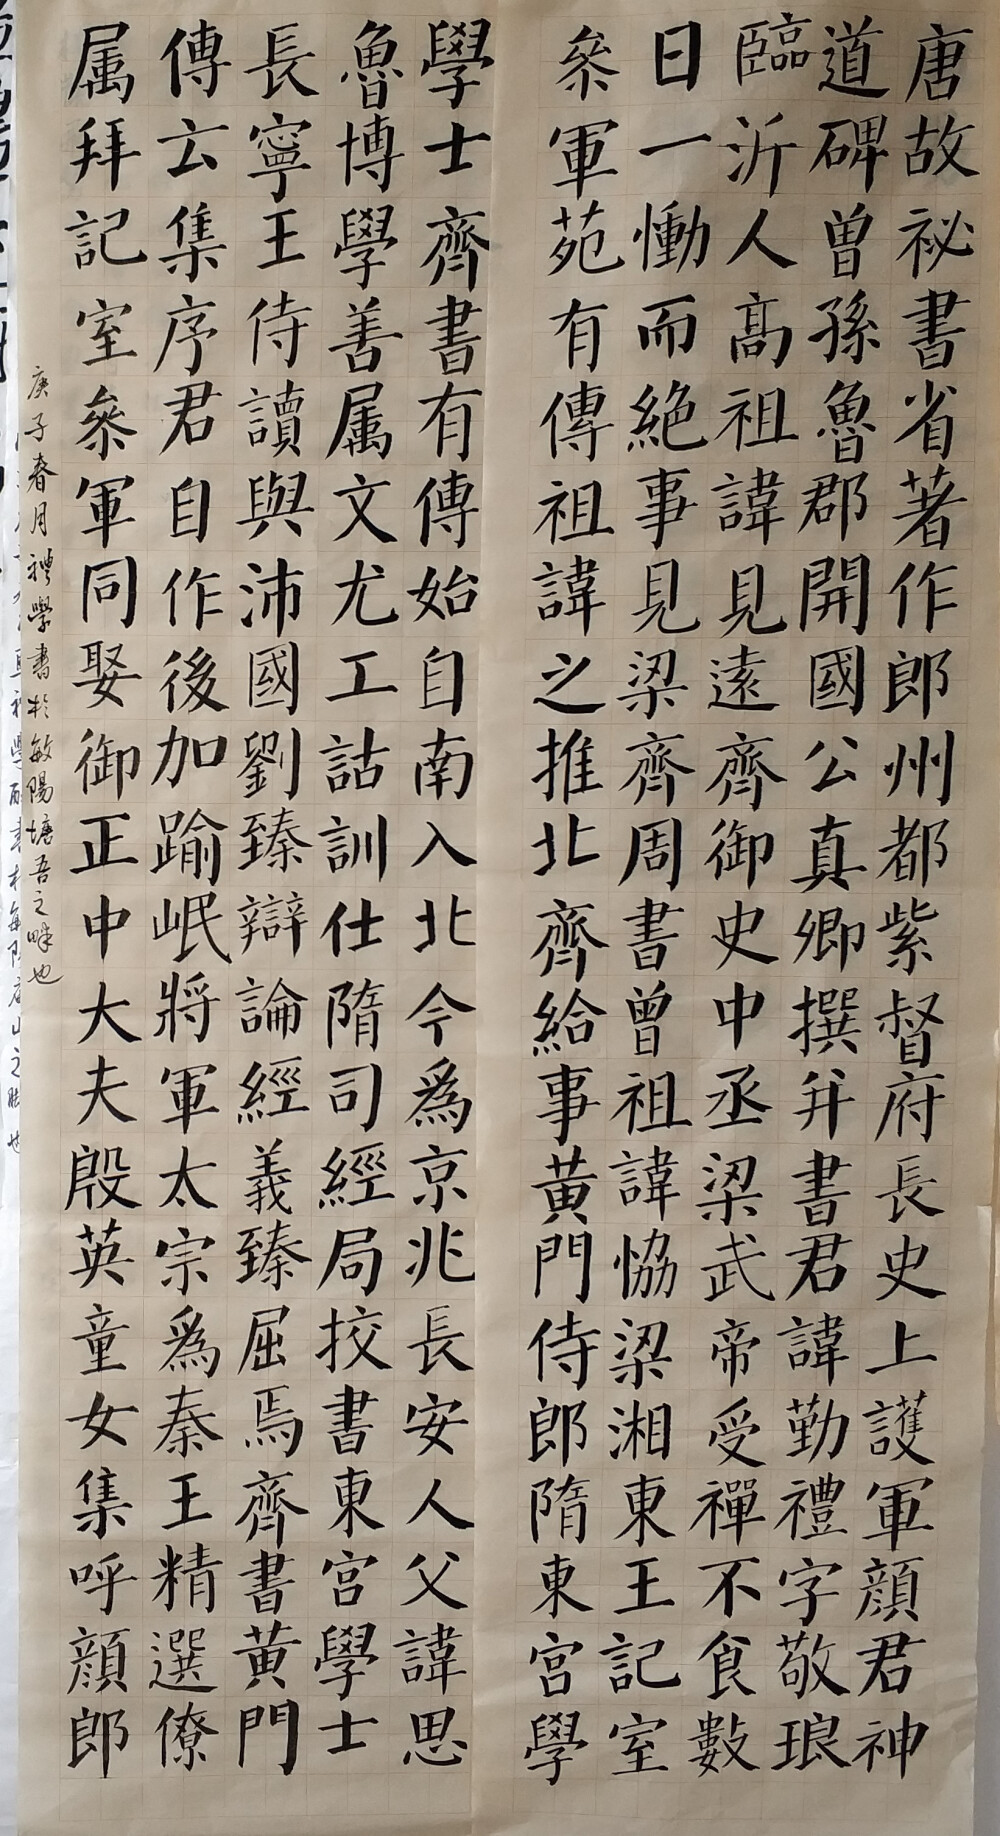 唐故祕書省著作郎州都紫督府長史上護軍顔君神
道碑曾孫魯郡開國公真卿撰并書君諱勤禮字敬琅
臨沂人高祖諱見遠齊御史中丞梁武帝受禪不食數
日一慟而絶事見梁齊周書曾祖諱恊梁湘東王記室
叅軍苑有傳祖諱之推北齊給事黄門侍郎隋東宫學
學士齊書有傳始自南入北今爲京兆長安人父諱思
魯博學善属文尤工詁訓仕隋司經局挍書東宫學士
長寧王侍讀與沛國劉臻辯論經義臻屈焉齊書黄門
傳云集序君自作後加踰岷將軍太宗爲秦王精選僚
属拜記室叅軍同娶御正中大夫殷英童女集呼顔郎
庚子春月禮學書於敏陽塘吾之畔也